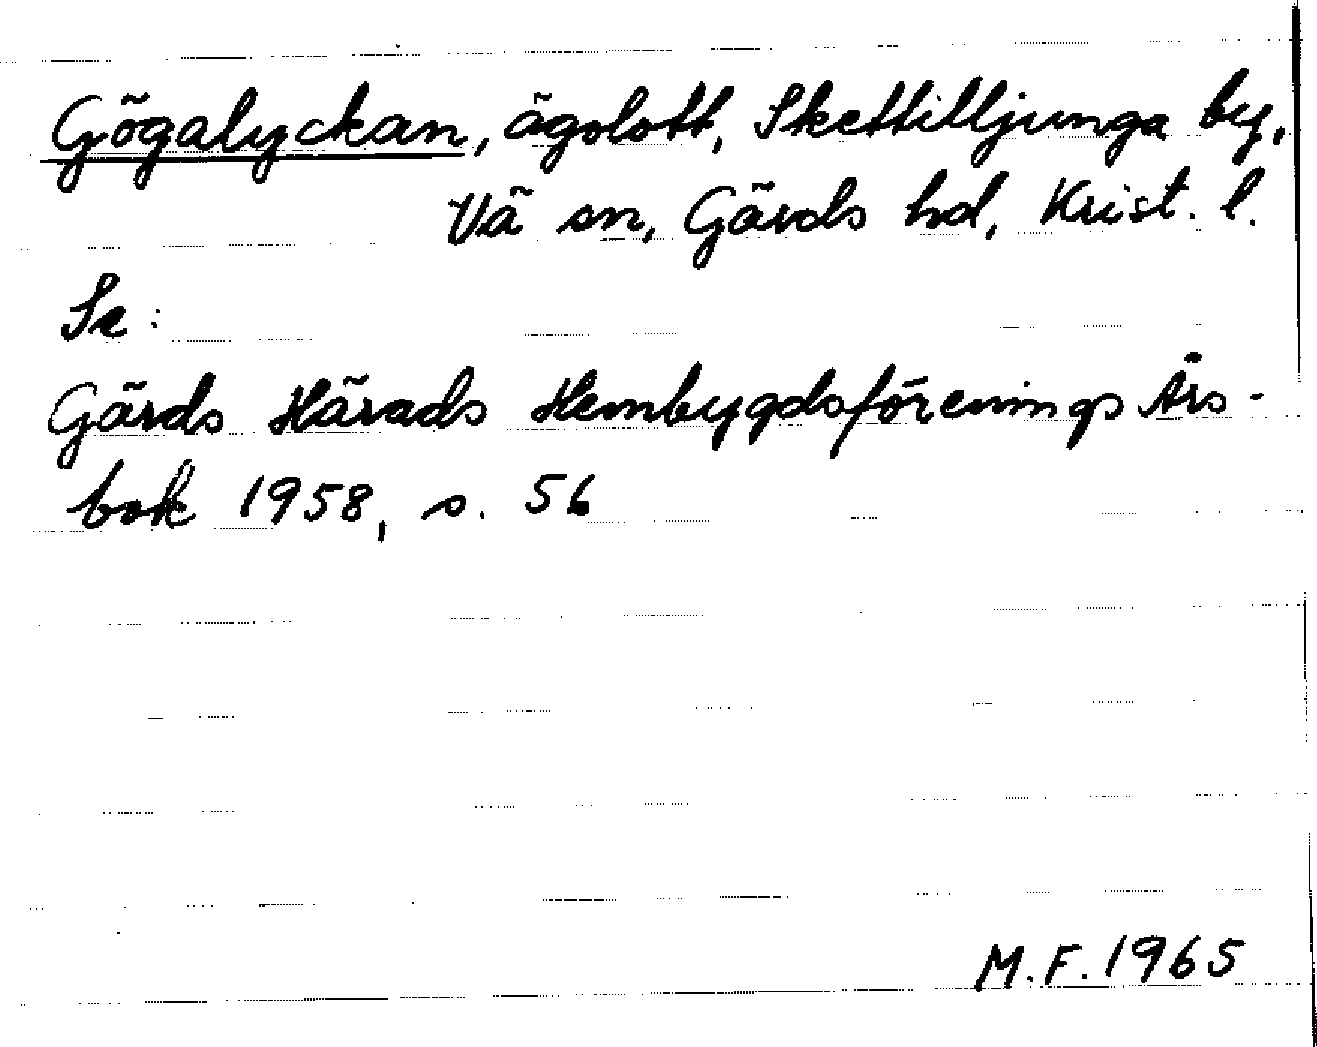 Gögalyckan, ägolott, Skettilljunga by,
Vä sn, Gärds hd, Krist. l.
Se:
Gärds Härads Hembygdsförenings Års-
bok 1958, s. 56
M.F. 1965